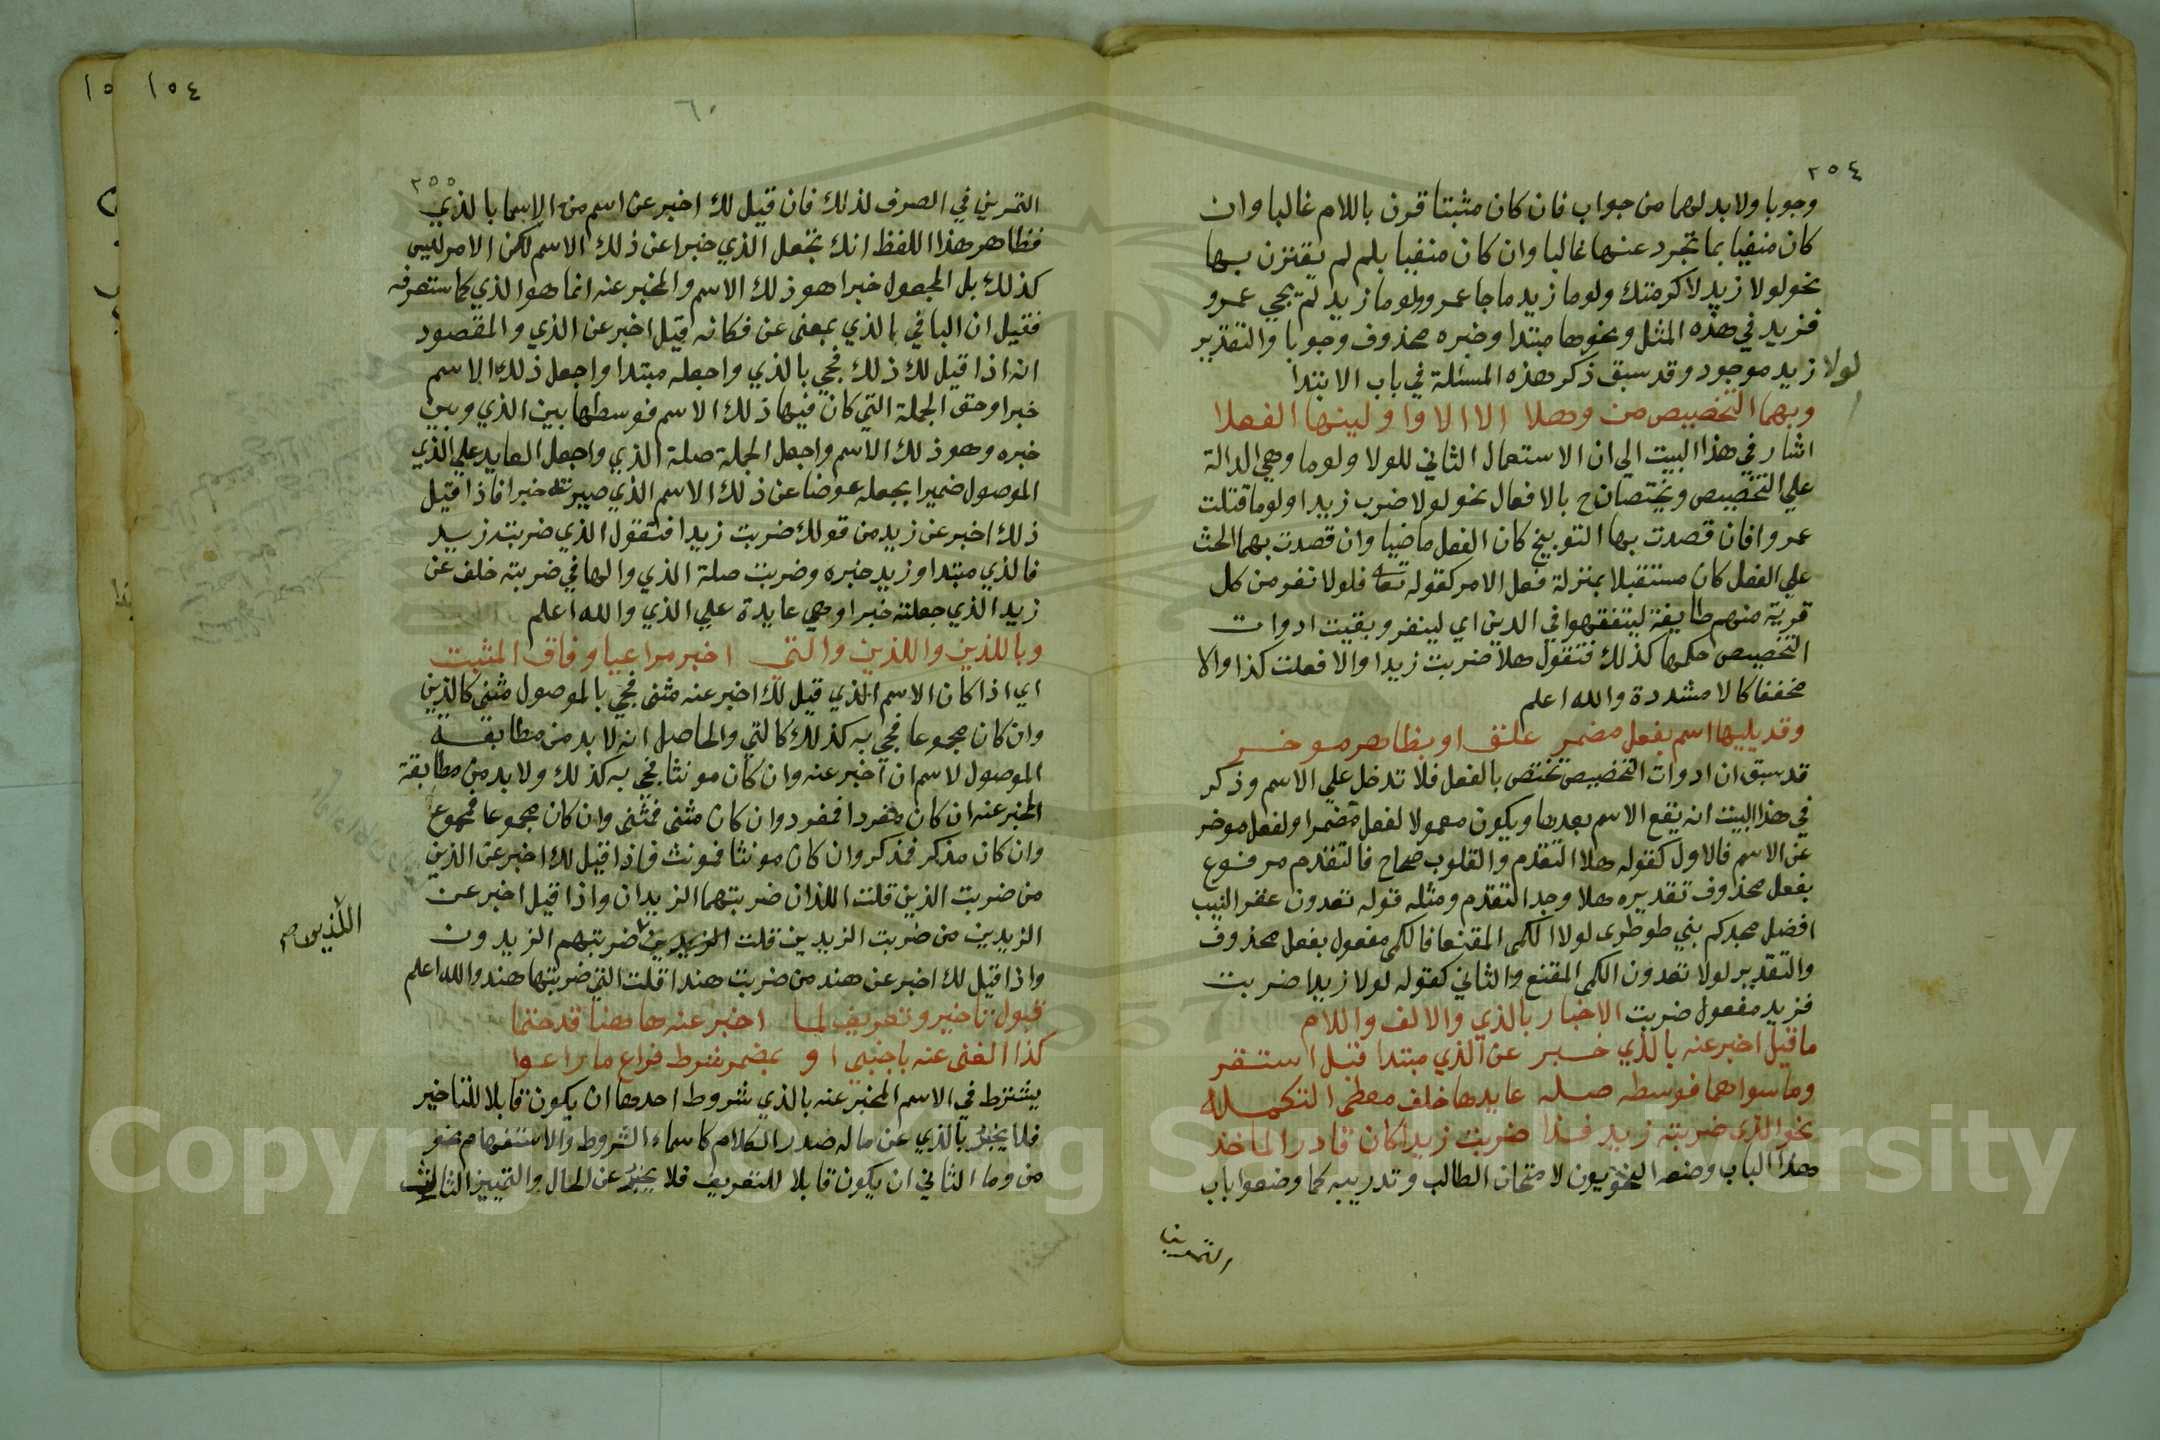 ٢٥٤
وجوبا ولا بد لهما من جواب فان كان مثبتا قرن باللام غالبا وان
كان منفيا بما تجرد عنها غالبا وان كان منفيا بلم لم يقترن بها
نحو لولا زيد لاكرمتك ولوما زيد ما جا عمرو ولوما زيد لم يجي عمرو
فزيد في هذه المثل ونحوها مبتدا وخبره محذوف وجوبا والتقدير
لولا زيد موجود وقد سبق ذكر هذه المسئلة في باب الابتدا
وبهما التخصيص من وهلا الا الا واولينها الفعلا
اشار في هذا البيت الي ان الاستعمال الثاني للولا ولوما وهي الدالة
علي التخصيص ويختصان ح بالافعال نحو لولا ضرب زيدا ولوما قتلت
عمروا فان قصدت بها التوبيخ كان الفعل ماضيا وان قصدت بهما الحث
علي الفعل كان مستقبلا بمنزلة فعل الامر كقوله تعا فلولا نفر من كل
قرية منهم طايفة ليتفقهوا في الدين اي لينفر وبقيت ادوات
التخصيص حكمها كذلك فتقول هلا ضربت زيدا والا فعلت كذا والا
مخففا كالا مشددة والله اعلم
وقد يليها اسم بفعل مضمر علق او بظاهر موخر
قد سبق ان ادوات التخصيص تختص بالفعل فلا تدخل علي الاسم وذكر
في هذا البيت انه يقع الاسم بعدها ويكون معمولا لفعل مضمرا ولفعل موخر
عن الاسم فالاول كقوله هلا التقدم والقلوب صحاح فالتقدم مرفوع
بفعل محذوف تقديره هلا وجد التقدم ومثله قوله تعدون عقر النيب
افضل مجدكم بني طوطرى لولا الكمى المقنعا فالكمى مفعول بفعل محذوف
والتقدير لولا تعدون الكمى المقنع والثاني كقوله لولا زيدا ضربت
فزيد مفعول ضربت الاخبار بالذي والالف واللام
ما قيل اخبر عنه بالذي خبر عن الذي مبتدا قبل استقر
وما سواهما فوسطه صله عايدها خلف معطى التكمله
نحو الذي ضربته زيد فذا ضربت زيدا كان فادر الماخذ
هذا الباب وضعه النحويون لامتحان الطالب وتدريبه كما وضعوا باب
التمرين
١٥٤
٦٠
٢٥٥
التمرين في الصرف لذلك فان قيل لك اخبر عن اسم من الاسما بالذي
فظاهر هذا اللفظ انك تجعل الذي خبرا عن ذلك الاسم لكن الامر ليس
كذلك بل المجعول خبرا هو ذلك الاسم والمخبر عنه انما هو الذي كما ستعرفه
فقيل ان البا في بالذي بمعنى عن فكانه قيل اخبر عن الذي والمقصود
انه اذا قيل لك ذلك فجي بالذي واجعله مبتدا واجعل ذلك الاسم
خبرا وحق الجملة التي كان فيها ذلك الاسم فوسطها بين الذي وبين
خبره وهو ذلك الاسم واجعل الجملة صلة الذي واجعل العايد علي الذي
الموصول ضميرا بجعله عوضا عن ذلك الاسم الذي صيرته خبرا فاذا قيل
ذلك اخبر عن زيد من قولك ضربت زيدا فتقول الذي ضربته زيد
فالذي مبتدا وزيد خبره وضربت صلة الذي والها في ضربته خلف عن
زيد الذي جعلته خبرا وهي عايدة علي الذي والله اعلم
وباللذين واللذين والتي اخبر مراعيا وفاق المثبت
اي اذا كان الاسم الذي قيل لك اخبر عنه مثنى فجي بالموصول مثنى كالذين
وان كان مجموعا فجي به كذلك كالتي والحاصل انه لا بد من مطابقة
الموصول لاسم ان اخبر عنه وان كان مونثا فجي به كذلك ولا بد من مطابقة
المخبر عنه ان كان مفردا فمفرد وان كان مثنى فمثنى وان كان مجموعا فمجموع
وان كان مذكر فمذكر وان كان مونثا فمونث فاذا قيل لك اخبر عن الذين
من ضربت الذين قلت اللذان ضربتهما الزيدان واذا قيل اخبر عن
الزيدين من ضربت الزيدين قلت الزيدين ضربتهم الزيدون
الذين صح
واذا قيل لك اخبر عن هند من ضربت هندا قلت التي ضربتها هند والله اعلم
قبول تاخير وتعريف لما اخبر عنه هاهنا قد حتما
كذا الغنى عنه باجنبي او بمضمر شرط فراع ما راعوا
يشترط في الاسم المخبر عنه بالذي شروط احدها ان يكون قابلا للتاخير
فلا يخبر بالذي عن ما له صدر الكلام كاسماء الشروط والاستفهام نحو
من وما الثاني ان يكون قابلا للتعريف فلا يخبر عن الحال والتمييز الثالث
Copyright © King Saud University
1957